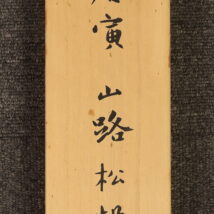 寅 山路松